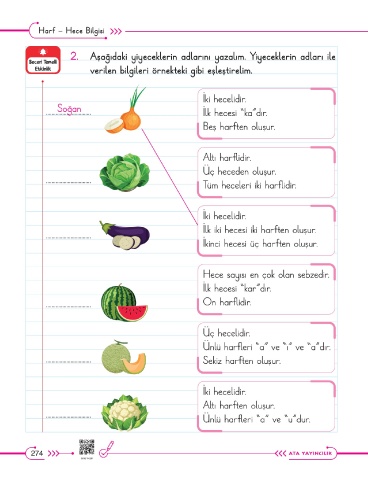 Harf – Hece Bilgisi
Beceri Temelli
Etkinlik
2. Aşağıdaki yiyeceklerin adlarını yazalım. Yiyeceklerin adları ile
verilen bilgileri örnekteki gibi eşleştirelim.
Soğan
İki hecelidir.
İlk hecesi “ka”dır.
Beş harften oluşur.
Altı harflidir.
Üç heceden oluşur.
Tüm heceleri iki harflidir.
İki hecelidir.
İlk iki hecesi iki harften oluşur.
İkinci hecesi üç harften oluşur.
Hece sayısı en çok olan sebzedir.
İlk hecesi “kar”dır.
On harflidir.
Üç hecelidir.
Ünlü harfleri “a” ve “ı” ve “a”dır.
Sekiz harften oluşur.
İki hecelidir.
Altı harften oluşur.
Ünlü harfleri “a” ve “u”dur.
274
ATA YAYINCILIK